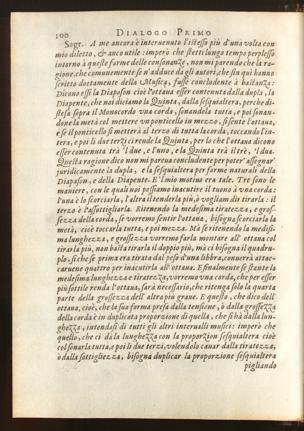 100 DIALOGO PRIMO
Sagr. A me ancora è interuenuto l'istesso più d'una volta con
mio diletto, & anco utile: imperò che stetti lungo tempo perplesso
intorno à queste forme delle consonanze, non mi parendo che la ra-
gione, che comunemente se n'adduce da gli autori, che sin qui hanno
scritto dottamente della Musica, fusse concludente à bastanza:
Dicono essi la Diapason cioè l'ottaua esser contenuta dalla dupla, la
Diapente, che noi diciamo la Quinta, dalla sesquialtera, perche di-
stesa sopra il Monocordo vna corda, sonandola tutta, e poi sonan-
done la metà col mettere un ponticello in mezzo, si sente l'ottaua,
e se il ponticello si metterà al terzo di tutta la corda, toccando l'in-
tera, e poi li due terzi ci rende la Quinta, per lo che l'ottaua dicono
esser contenuta trà 'l due, e l'uno, e la Quinta trà il tre, 'l dua.
Questa ragione dico non mi pareua concludente per poter' assegnar'
juridicamente la dupla, e la sesquialtera per forme naturali della
Diapason, e della Diapente. E 'l mio motiuo era tale. Tre sono le
maniere, con le quali noi possiamo inacutire il tuono à vna corda:
l'una è lo scorciarla, l'altra il tenderla più, ò vogliam dir tirarla: il
terzo è l'assottigliarla. Ritenendo la medesima tiratezza, e gros-
sezza della corda, se vorremo sentir l'ottaua, bisogna scorciarla la
metà, cioè toccarla tutta, e poi mezza. Mà se ritenendo la medesi-
ma lunghezza, e grossezza vorremo farla montare all' ottaua col
tirarla più, non basta tirarla il doppio più, mà ci bisogna il quadru-
plo, sì che se prima era tirata dal peso d'una libbra, conuerrà attac-
caruene quattro per inacutirla all' ottaua. E finalmente se stante la
medesima lunghezza e tiratezza, vorremo vna corda, che per esser
più sottile renda l'ottaua, sarà necessario, che ritenga solo la quarta
parte della grossezza dell' altra più graue. E questo, che dico dell'
ottaua, cioè, che la sua forma presa dalla tensione, ò dalla grossezza
della corda è in duplicata proporzione di quella, che si hà dalla lun-
ghezza, intendasi di tutti gli altri interualli musici: imperò che
quello, che ci dà la lunghezza con la proporzion sesquialtera cioè
col sonarla tutta, e poi li due terzi, volendolo cauar dalla tiratezza,
ò dalla sottigliezza, bisogna duplicar la proporzione sesquialtera
pigliando